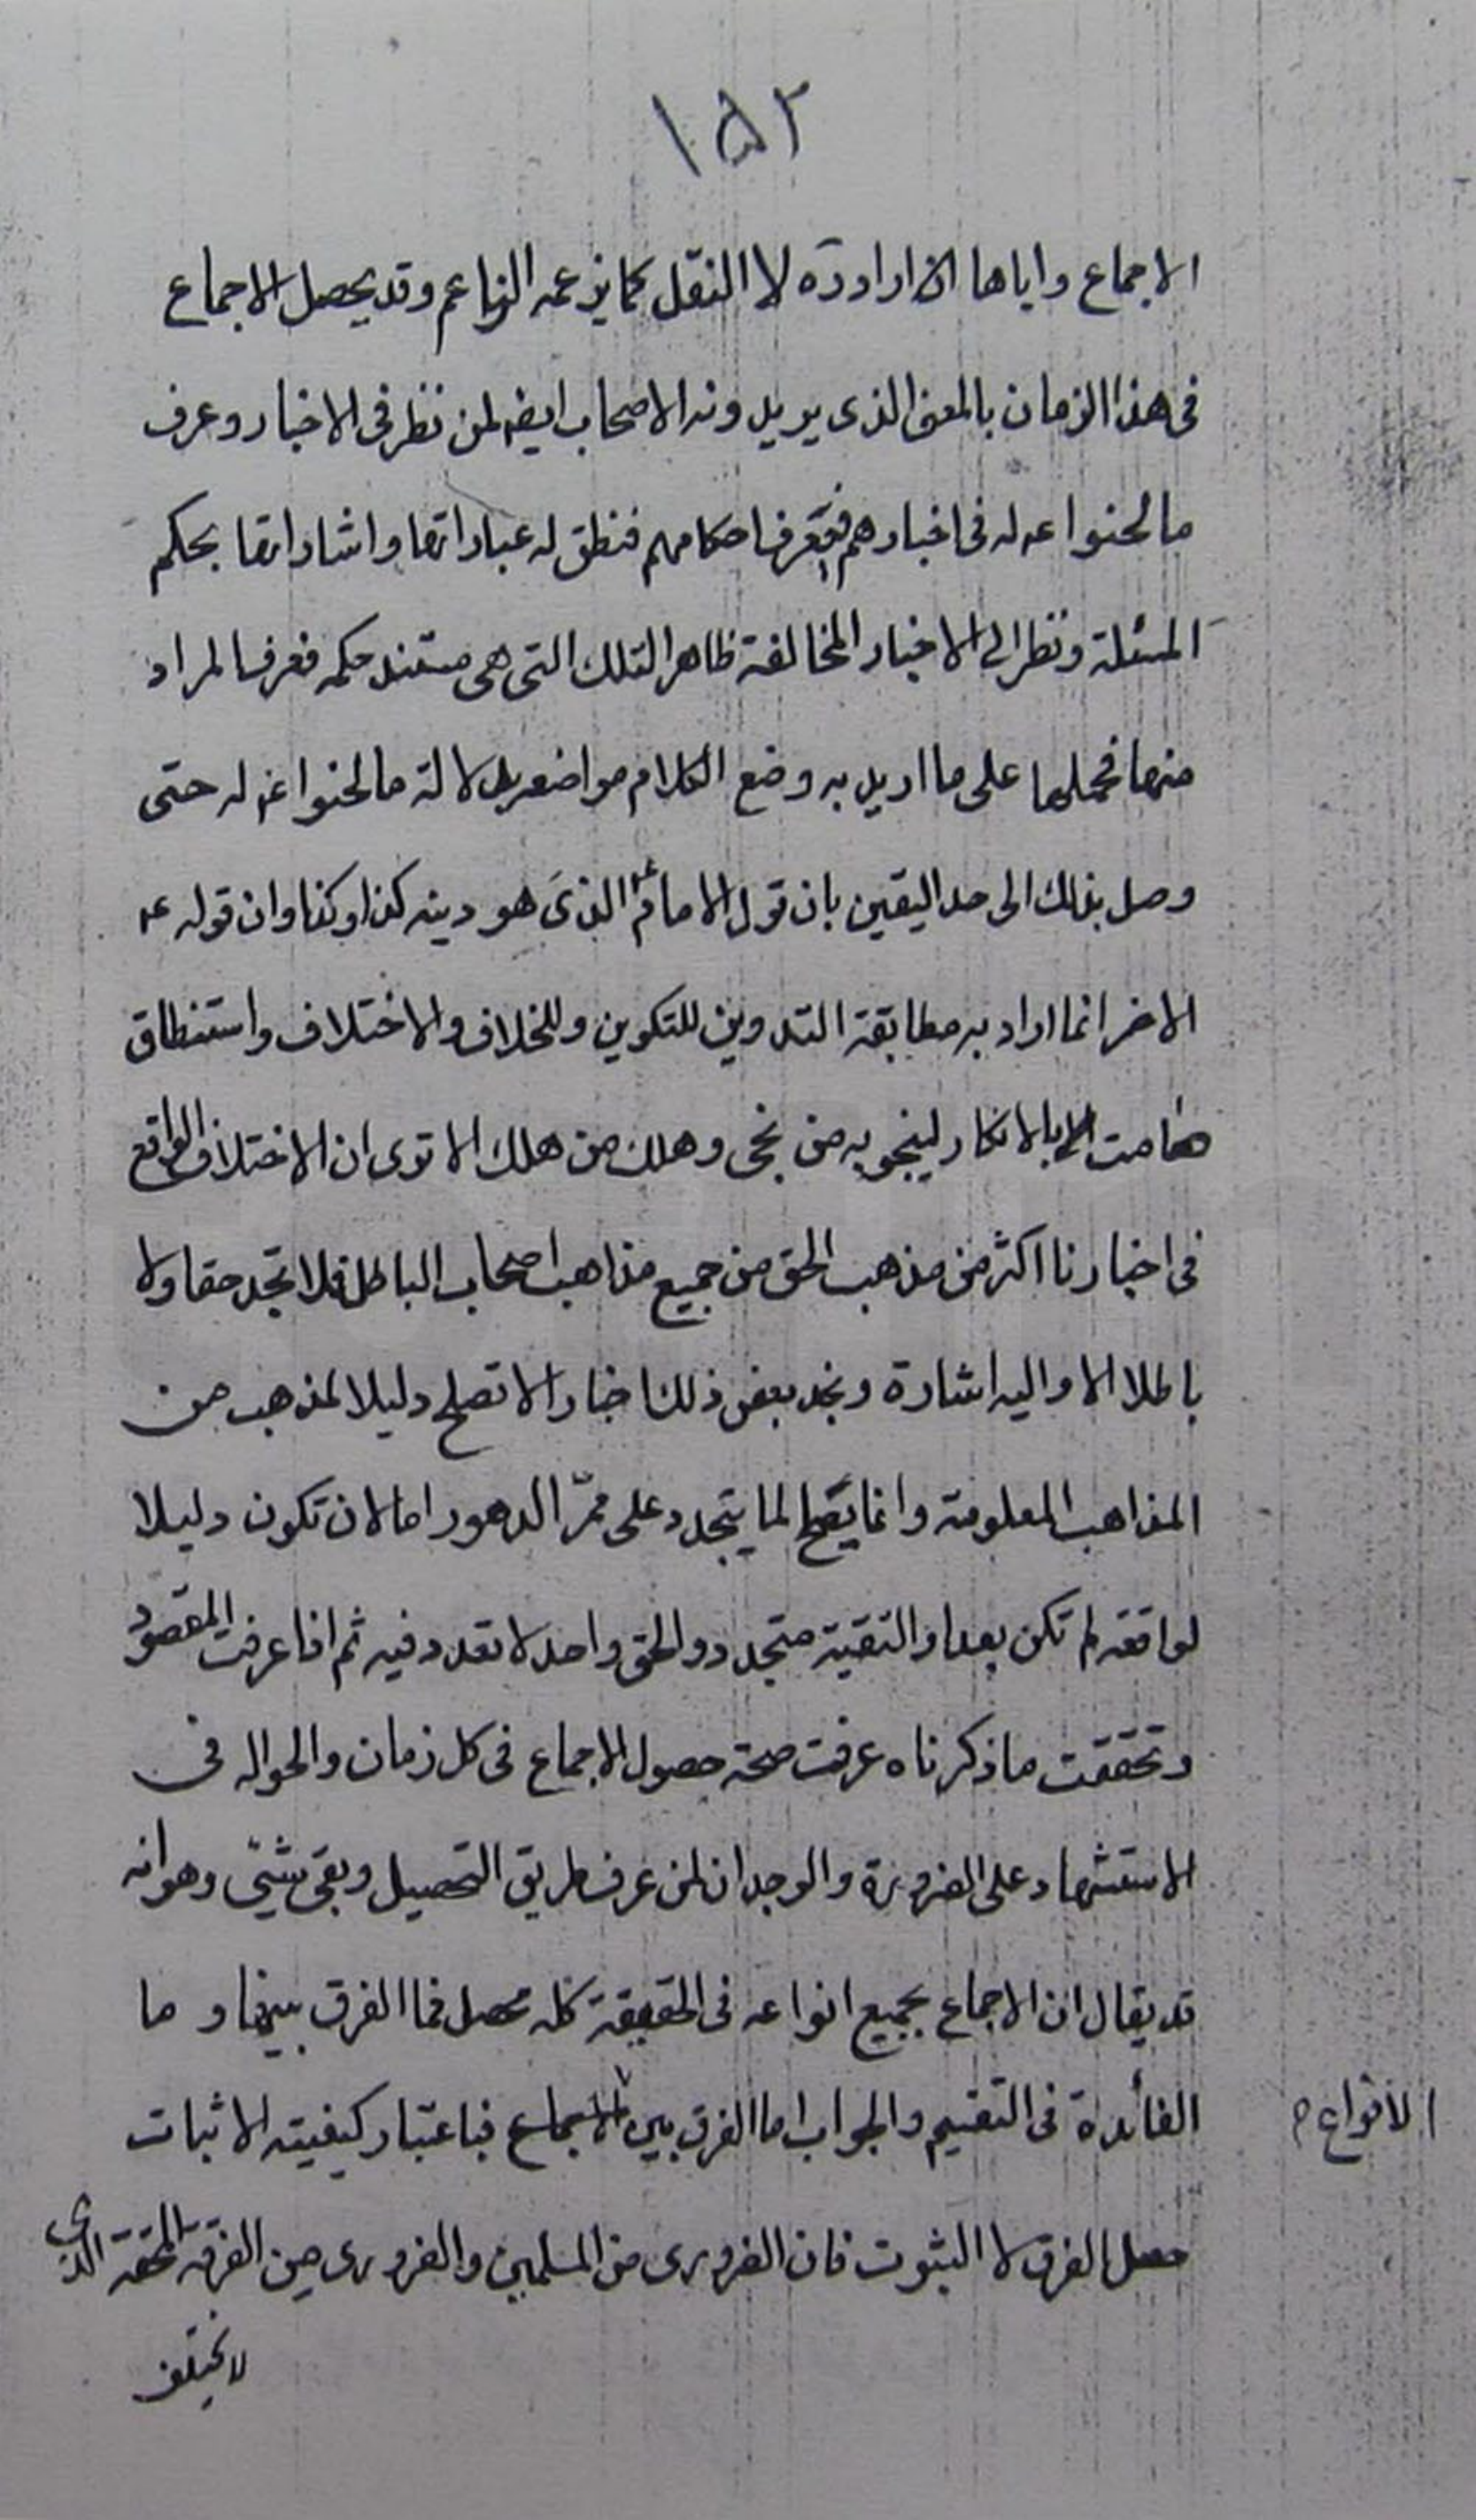 ١٥٢
الاجماع واياها ارادوه لا النقل كما يزعمه الزاعم وقد يحصل الاجماع
فى هذا الزمان بالمعنى الذى يريدونه الاصحاب ايضا لمن نظر فى الاخبار وعرف
ما لحنوا له فى اخبارهم فعرف احكامهم فنطق له عباراتها واشاراتها بحكم
المسئلة ونظر الى الاخبار المخالفة ظاهرا لتلك التى هى مستند حكمه فعرف المراد
منها فحملها على ما اريد به وضع الكلام مواضعه بدلالة ما لحنوا له حتى
وصل بذلك الى حد اليقين بان قول الامام ع الذى هو دينه كذا وكذا وان قوله ع
الاخر انما اراد به مطابقة التدوين للتكوين وللخلاف والاختلاف واستنطاق
بالانكار لينجو به من نجى وهلك من هلك الا ترى ان الاختلاف الواقع
فى اخبارنا اكثر من مذهب الحق من جميع مذاهب اصحاب الباطل فلا تجد حقا ولا
باطلا الا واليه اشارة ونجد بعض ذلك اخبارا لا تصلح دليلا لمذهب من
المذاهب المعلومة وانما يصلح لما يتجدد على ممرّ الدهور اما لان تكون دليلا
لواقعة لم تكن بعد او التقية متجدد والحق واحد لا تعدد فيه ثم اذا عرفت المقصود
وتحققت ما ذكرناه عرفت صحة حصول الاجماع فى كل زمان والحواله فى
الاستشهاد على الضرورة والوجدان لمن عرف طريق التحصيل وبقى شئ وهو انه
قد يقال ان الاجماع بجميع انواعه فى الحقيقة كله محصل فما الفرق بينها وما
الفائدة فى التقسيم والجواب اما الفرق بين الاجماع فباعتبار كيفيته الاثبات
الانواع م
حصل الفرق لا الثبوت فان الضرورى من المسلمين والضرورى من الفرقة المحقة الذى
لا يختلف